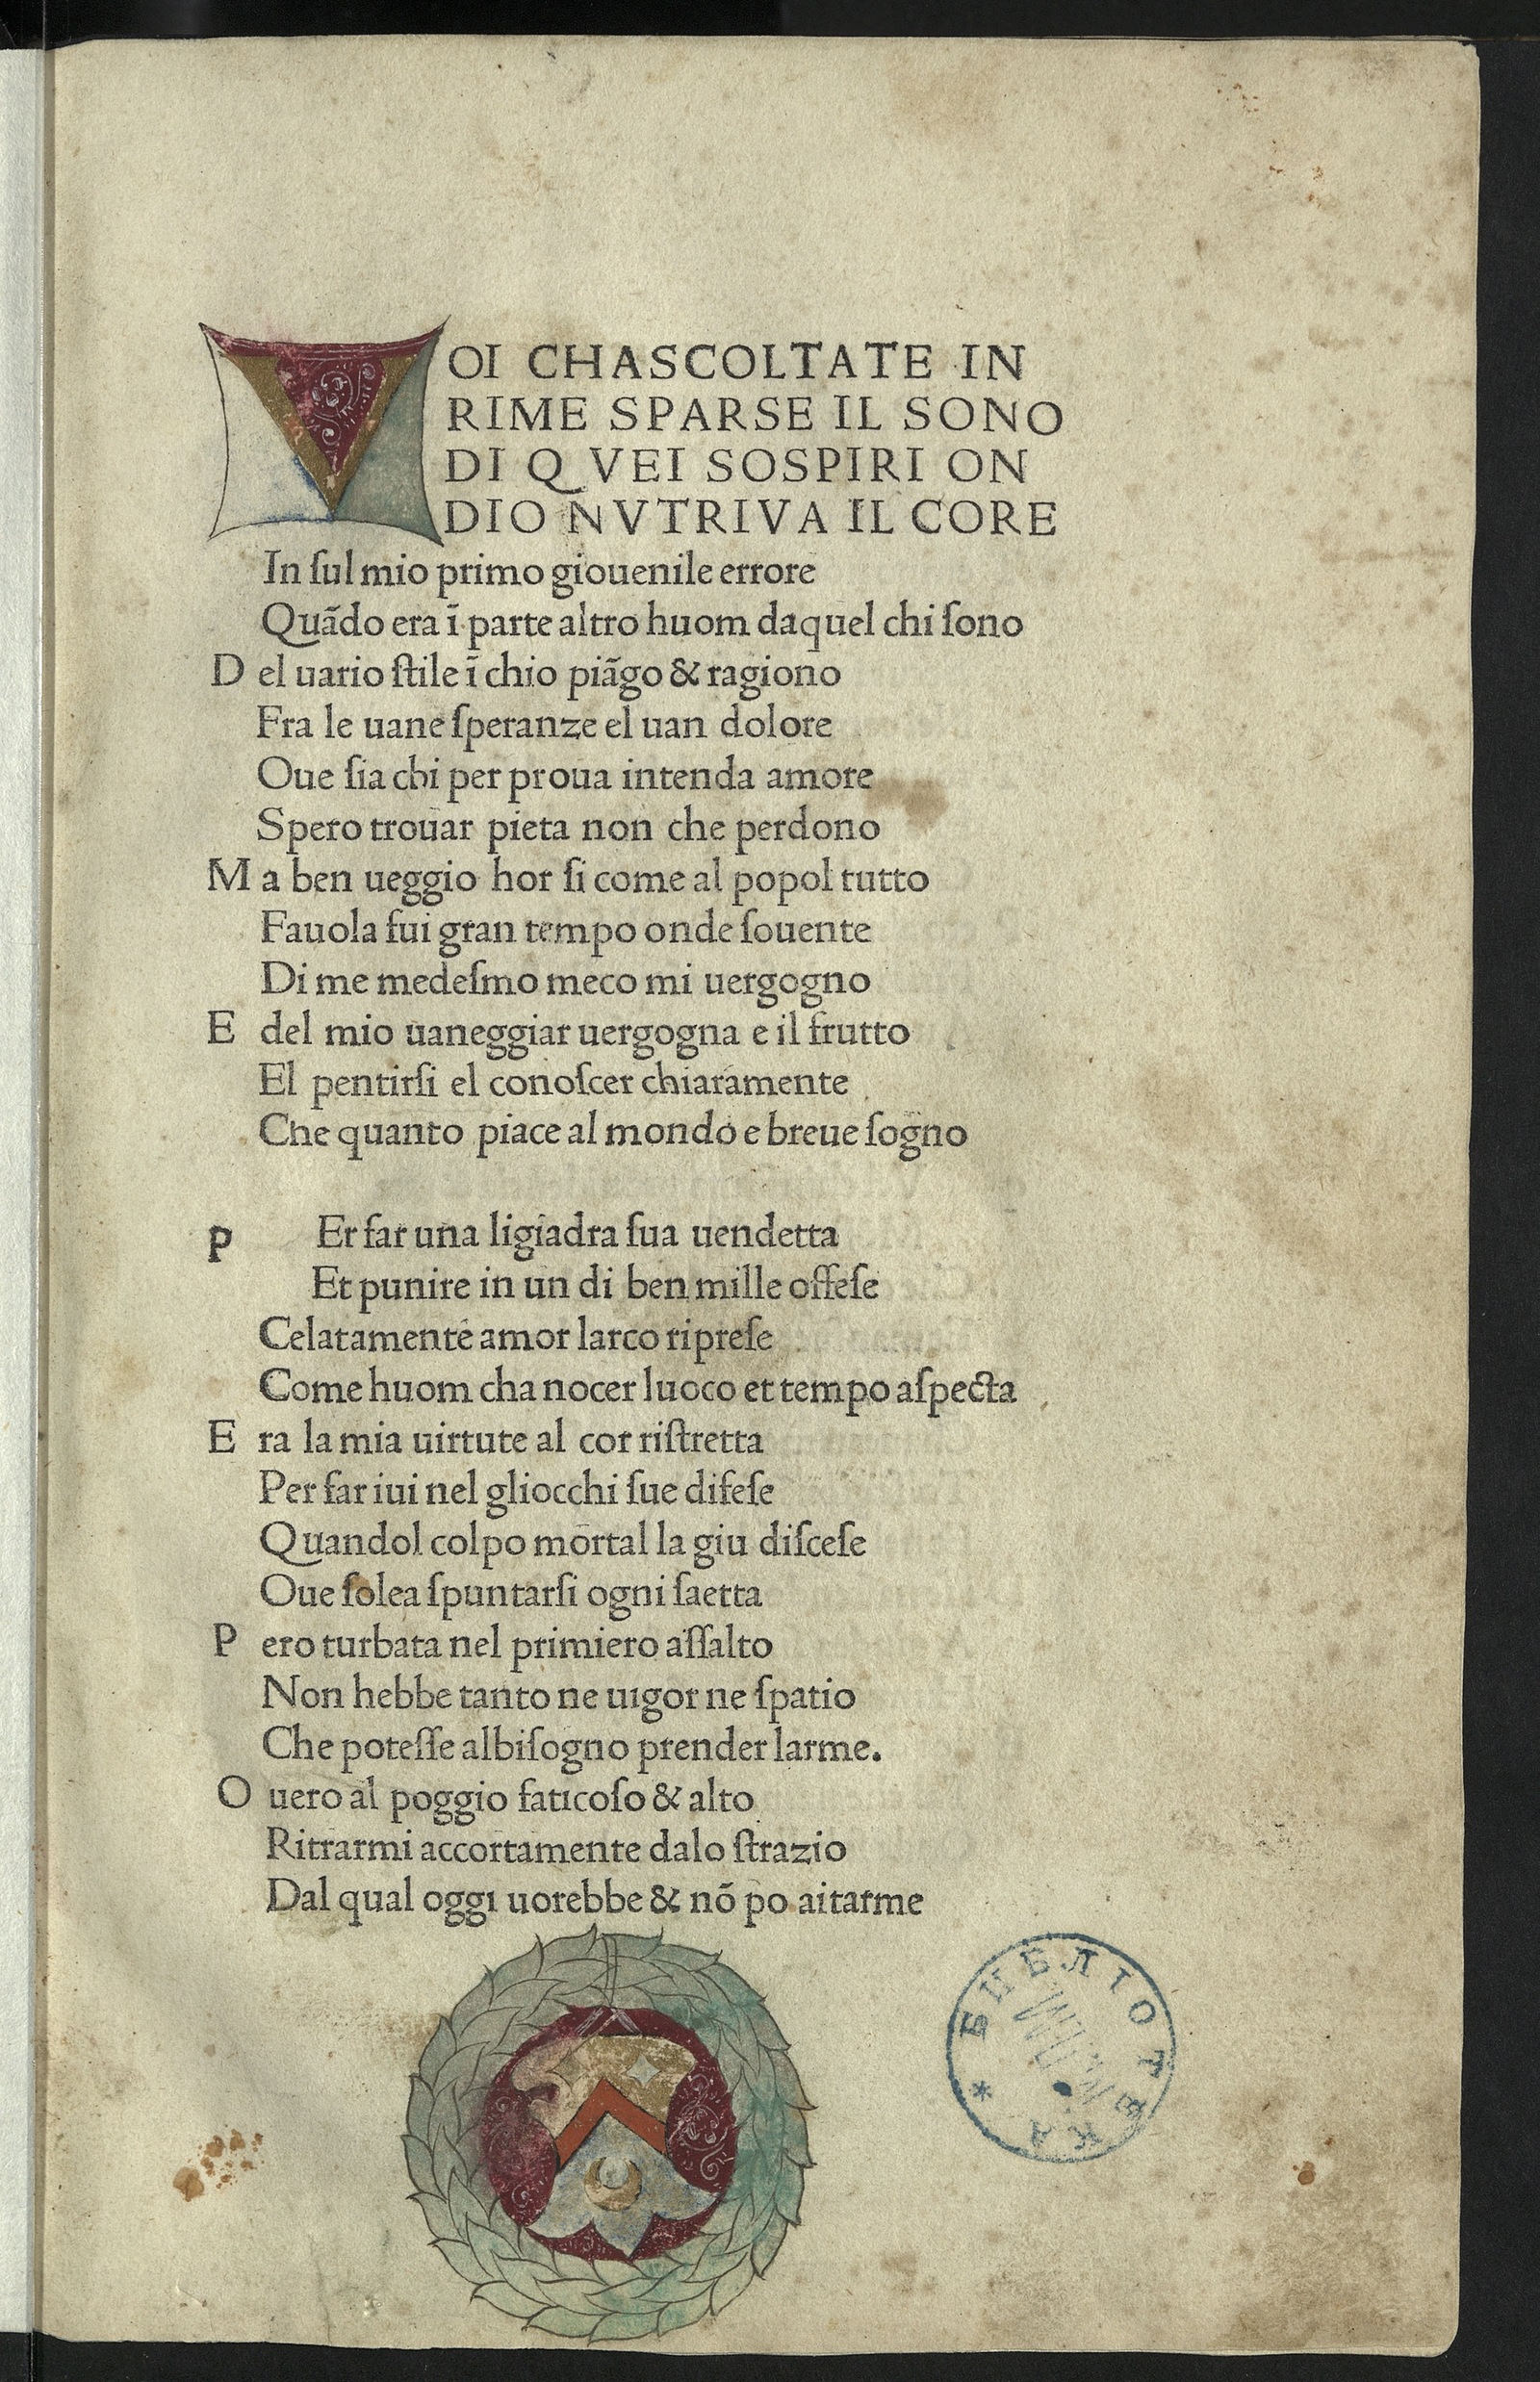 VOI CHASCOLTATE IN
RIME SPARSE IL SONO
DI QVEI SOSPIRI ON
DIO NVTRIVA IL CORE
In ſul mio primo giouenile errore
Quãdo era ĩ parte altro huom daquel chi ſono
D el uario ſtile ĩ chio piãgo & ragiono
Fra le uane ſperanze el uan dolore
Oue ſia chi per proua intenda amore
Spero trouar pieta non che perdono
M a ben ueggio hor ſi come al popol tutto
Fauola fui gran tempo onde ſouente
Di me medeſmo meco mi uergogno
E del mio uaneggiar uergogna e il frutto
El pentirſi el conoſcer chiaramente
Che quanto piace al mondo e breue ſogno
P Er far una ligiadra ſua uendetta
Et punire in un di ben mille offeſe
Celatamente amor larco ripreſe
Come huom cha nocer luoco et tempo aſpecta
E ra la mia uirtute al cor riſtretta
Per far iui nel gliocchi ſue difeſe
Quandol colpo mortal la giu diſceſe
Oue ſolea ſpuntarſi ogni ſaetta
P ero turbata nel primiero aſſalto
Non hebbe tanto ne uigor ne ſpatio
Che poteſſe albiſogno prender larme.
O uero al poggio faticoſo & alto
Ritrarmi accortamente dalo ſtrazio
Dal qual oggi uorebbe & nõ po aitarme
БИБЛІОТЕКА *